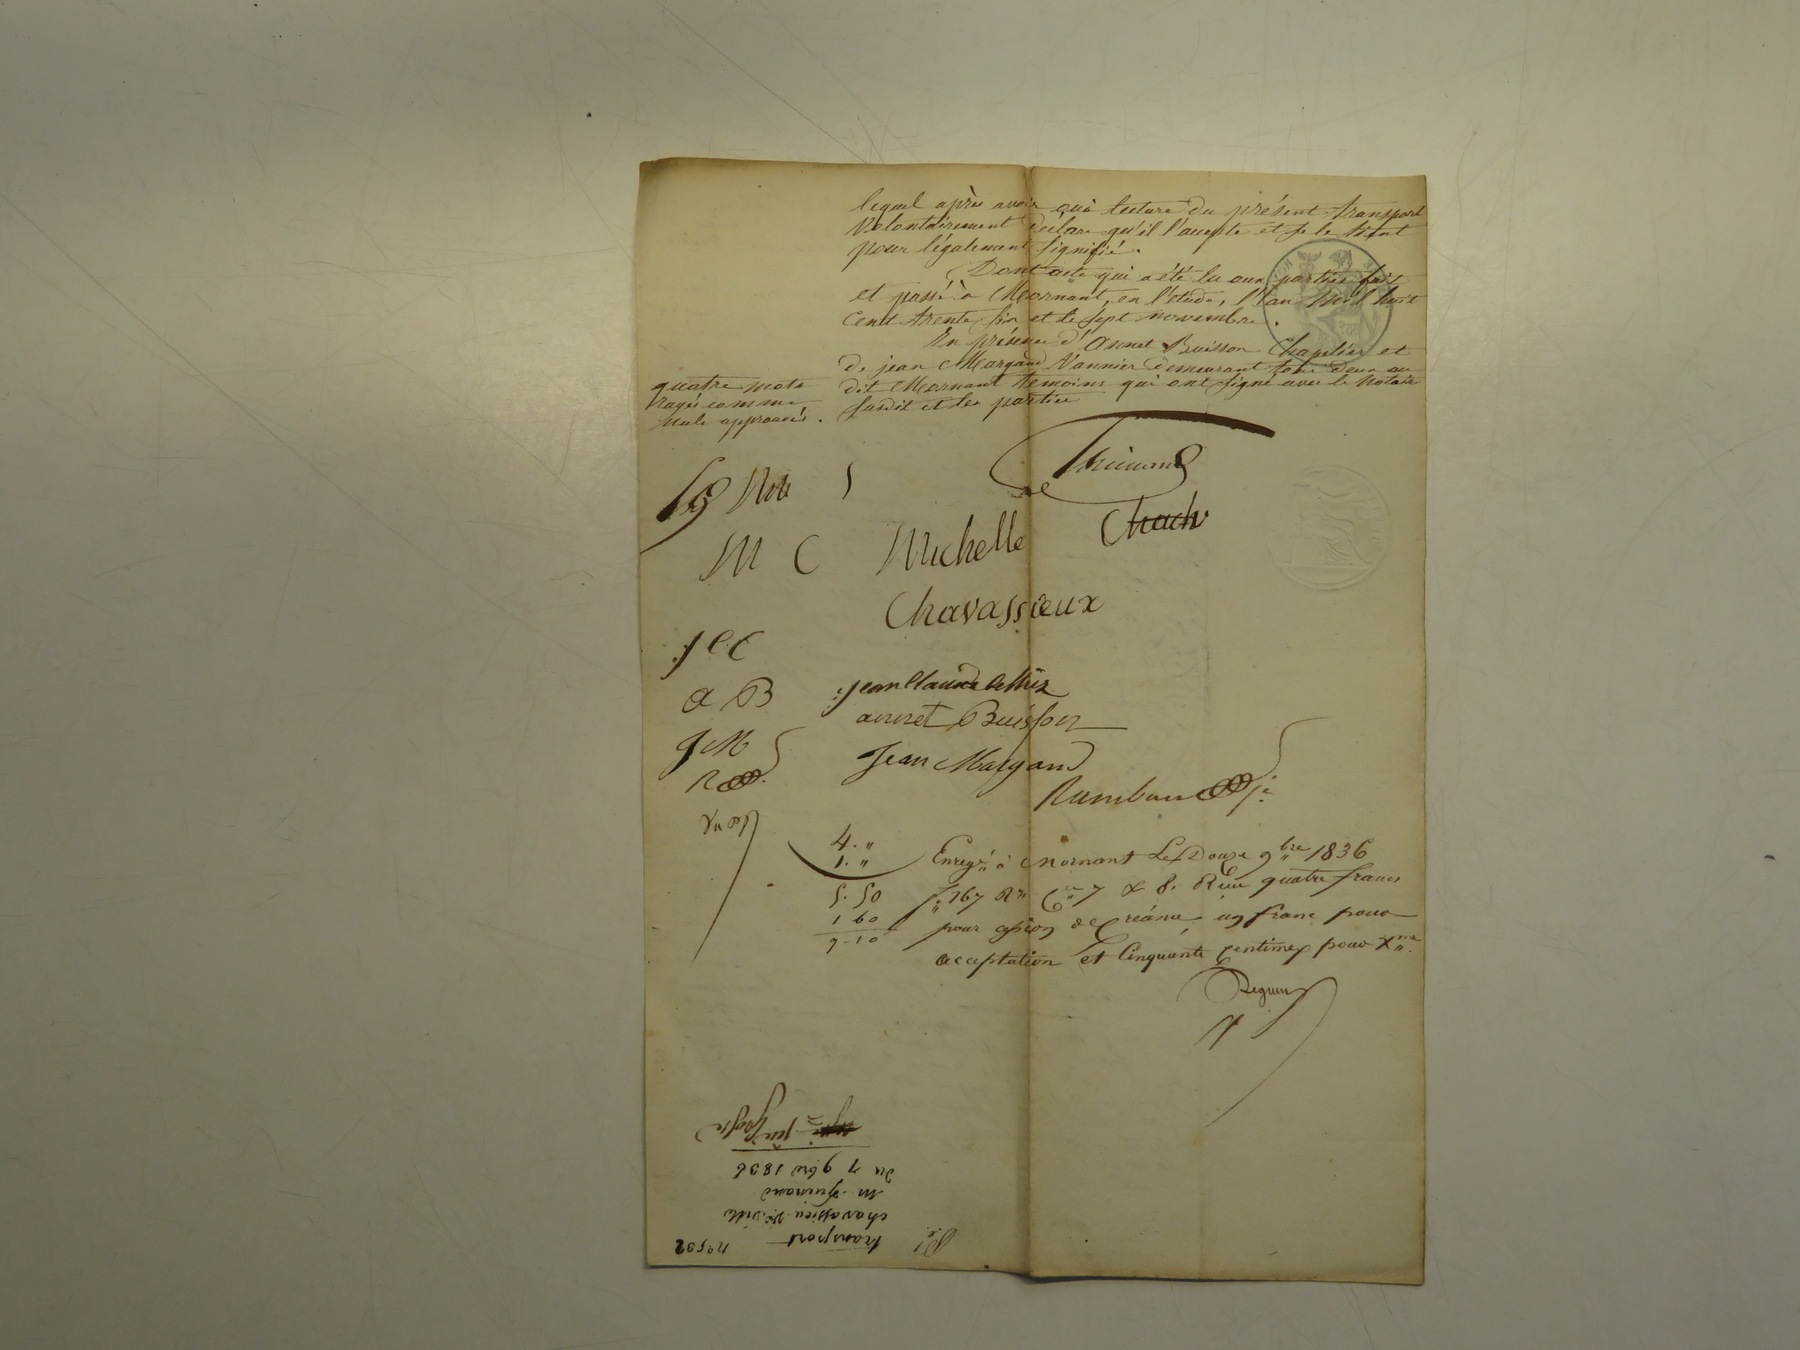 lequel après avoir ouï lecture du présent transport
volontairement déclare qu'il l'accepte et se le tient
pour légalement signifié.
Dont acte qui a été lu aux parties fait
et passé à Mornant, en l'étude, l'an mil huit
cent trente six et le sept novembre.
En présence d'Annet Buisson Chapelier et
de jean Margand Vannier demeurant tous deux au
dit Mornant temoins qui ont signé avec le Notaire
susdit et les parties
quatre mots
rayés comme
nuls approuvés.
M C Michelle
Chavassieux
J C C
a B
jean Claude
annet Buisson
J M
Jean Margand
R
Vu
4. "
1. "
5. 50
1 60
7-10
Enregé à Mornant Le Douze 9bre 1836
fo 167 Ro Ce 7 & 8. Reçu quatre francs
pour cession de Créance un franc pour
acceptation et Cinquante Centimes pour Xme.
No 532
transport
chavassieu Ve
M
du 7 9bre 1836